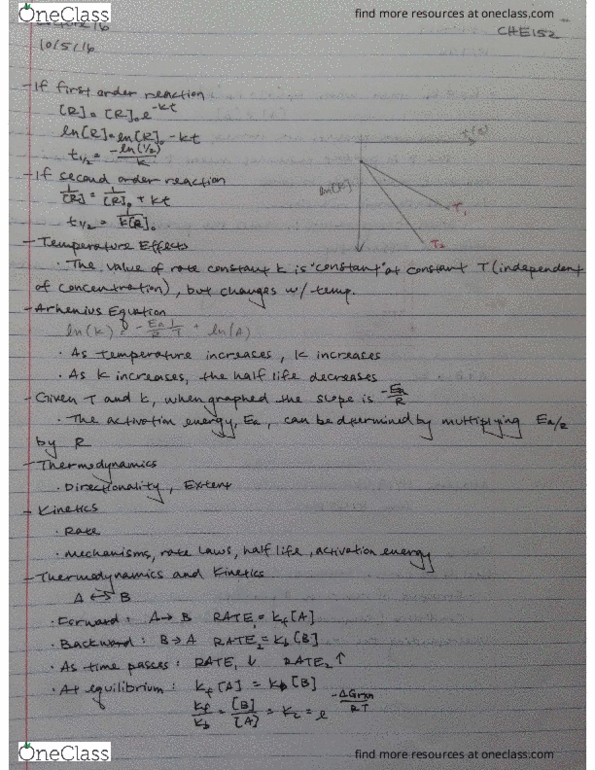 OneClass
find more resources at oneclass.com
CHE152
10/5/16
- If first order reaction
[R] = [R]₀e^-kt
ln[R] = ln[R]₀ - kt
t1/2 = -ln(1/2)/k
t(s)
ln[R]
T₁
T₂
- If second order reaction
1/[R] = 1/[R]₀ + kt
t1/2 = 1/k[R]₀
- Temperature Effects
· The value of rate constant k is "constant" at constant T (independent
of concentration), but changes w/ temp.
- Arhenius Equation
ln(k) = -Ea/R 1/T + ln(A)
· As temperature increases, k increases
· As k increases, the half life decreases
- Given T and k, when graphed the slope is -Ea/R
· The activation energy, Ea, can be determined by multiplying Ea/R
by R
- Thermodynamics
· Directionality, Extent
- Kinetics
· Rate
· mechanisms, rate laws, half life, activation energy
- Thermodynamics and Kinetics
A ⇌ B
· Forward: A → B RATE₁ = kf[A]
· Backward: B → A RATE₂ = kb[B]
· As time passes: RATE₁ ↓ RATE₂ ↑
· At equilibrium: kf[A] = kb[B]
kf/kb = [B]/[A] = K = e^-ΔGrxn/RT
OneClass
find more resources at oneclass.com